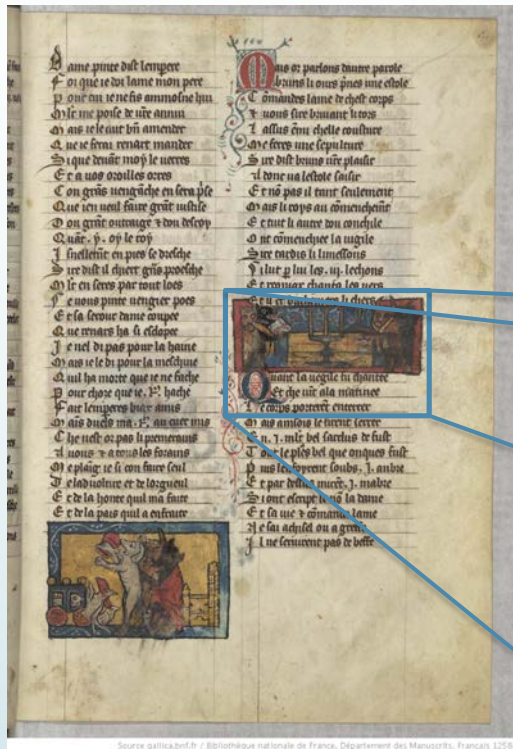 Dame pinte dist lempere
Foi que ie doi lame mon pere
Por cui ie ne fis ammosne hui
Mlt me poise de vre annui
Mais ie le cuit bn amender
Que ie ferai renart mander
Si que devãt moy le verres
Et a vos oroilles orres
Con grãs vengãche en sera pse
Que ien veul faire grãt iustise
Don grãt outraige ⁊ dou desroy
Quãt . y . oy le roy
Isnellemt en pies se dresche
Sire dist il chiert grãs proesche
Mlt en seres par tout loes
Se vous pinte vengier poes
Et sa serour dame coupee
Que renars ha si esclopee
Je nel di pas pour la haine
Mais ie le di pour la meschine
Quil ha morte que ie ne fache
Pour chose que ie . R . hache
Fait lemperes biax amis
Mais duels ma . R . au cuer mis
Che nest or pas li premerains
A vous ⁊ a tous les forains
Me plaig ie si con faire seul
De lavoltire et de lorgueul
Et de la honte quil ma faite
Et de la pais quil a enfraite
Mais or parlons dautre parole
Bruns li ours pnes une estole
Comandes lame de chest corps
⁊ vous sire bruiant li tors
I assus enmi chelle cousture
Me feres une sepulture
Sire dist bruns vre plaisir
A donc va lestole saisir
Et nõ pas il tant seulement
Mais li roys au cõmenchemt
Et tuit li autre dou concile
Ont cõmenchiee la vigile
Sire tardis li limessons
I lut p lui les . iij . lechons
Et rooniax chanta les vers
Quant la vegile fu chantee
Et che vit a la matinee
Le corps porterẽt enterrer
Mais ansois le firent serrer
En . I . mlt bel sarcleus de fust
Tout le ples bel que onques fust
Puis lenfoyrent soubs . I . arbre
Et par desus mirẽt . I . mabre
Si ont escript le nõ la dame
Et sa vie ⁊ cõmandẽt lame
Ne sai
Source gallica.bnf.fr / Bibliothèque nationale de France. Département des Manuscrits. Français 1258